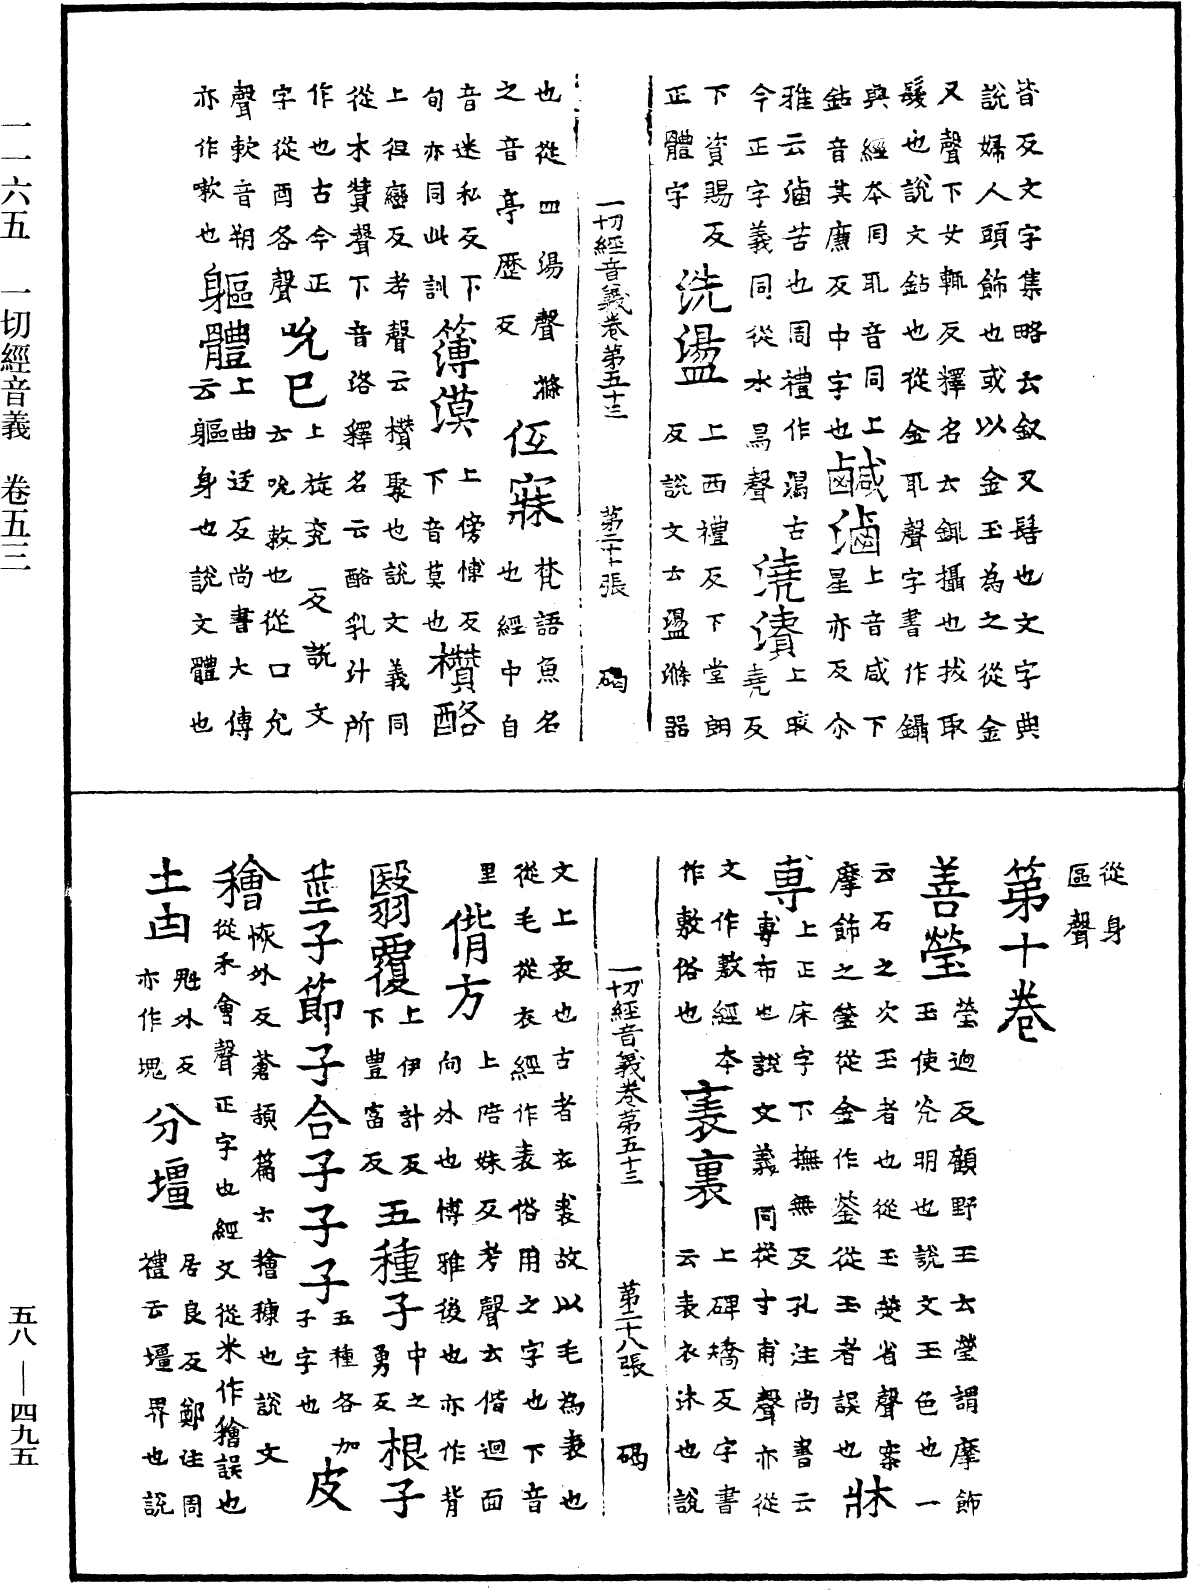 皆反文字集略云釵叉髻也文字典
說婦人頭飾也或以金玉為之從金
叉聲下女輒反釋名云鑷攝也拔取
髮也說文鉆也從金耴聲字書作鑷
與經本同耴音同上
鉆音其廉反中字也鹹滷上音咸下
星亦反尒
雅云滷苦也周禮作潟古
今正字義同從水舄聲澆漬上晈
堯反
下資賜反洗盪上西禮反下堂朗
反說文云盪滌器
正體字
一切經音義卷第五十三 第二十張 碣
也從皿湯聲滌
之音亭歷反伍寐梵語魚名
也經中自
音迷私反下
旬亦同此訓簿漠上傍慱反
下音莫也欑酪
上徂巒反考聲云欑聚也說文義同
從木贊聲下音洛釋名云酪乳汁所
作也古今正
字從酉各聲吮已上旋兖反說文
云吮敕也從口允
聲軟音朔
亦作嗽也軀體上曲迃反尚書大傳
云軀身也說文體也
從身
區聲
第十卷
善瑩瑩迥反顧野王云瑩謂摩飾
玉使光明也說文玉色也一
云石之次玉者也從玉熒省聲案
摩飾之瑩從金作鎣從玉者誤也牀
尃上正床字下撫無反孔注尚書云
尃布也說文義同從寸甫聲亦從
文作敷經本
作敷俗也裹裏上碑矯反字書
云表衣沬也說
文上衣也古者衣裘故以毛為表也
從毛從衣經作表俗用之字也下音
里偝方上陪妹反考聲云偝迴面
向外也博雅後也亦作背
翳覆上伊計反
下豊富反五種子中之
勇反根子
莖子節子合子子子五種各
子字也加皮
穭恢外反蒼頡篇云穭穅也說文
從禾會聲正字也經文從米作糩誤也
土凷魁外反
亦作塊分壃居良反鄭注周
禮云壃界也說
一切經音義卷第五十三 第二十八張 碣
一一六五 一切經音義 卷五三
五八—四九五